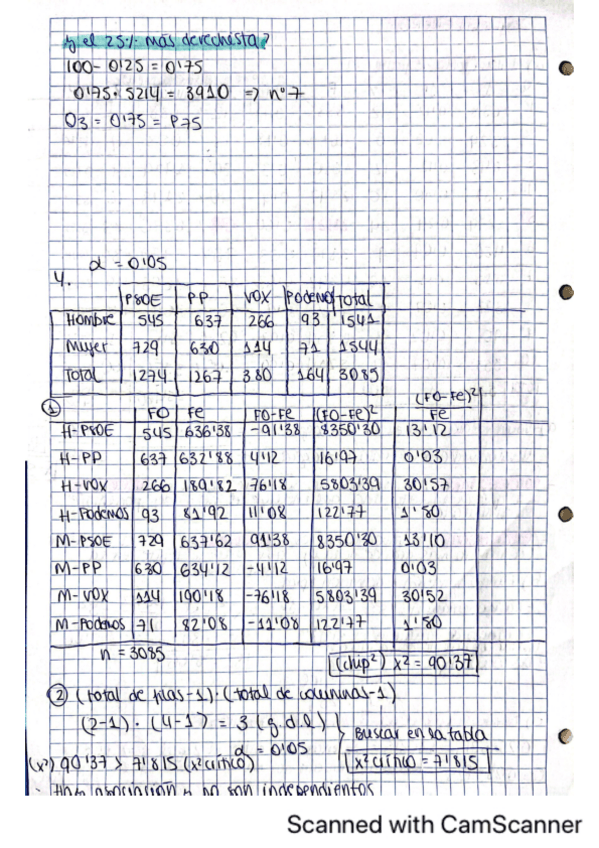 y el 25% más derechista?
100 - 0'25 = 0'75
0'75 · 5214 = 3910 => nº 7
Q3 = 0'75 = P75
4. α = 0'05
PSOE PP VOX Podemos Total
Hombre 545 637 266 93 1541
Mujer 729 630 114 71 1544
Total 1274 1267 380 164 3085
①
FO Fe FO-Fe (FO-Fe)² (FO-Fe)²/Fe
H-PSOE 545 636'38 -91'38 8350'30 13'12
H-PP 637 632'88 4'12 16'97 0'03
H-VOX 266 189'82 76'18 5803'39 30'57
H-Podemos 93 81'92 11'08 122'77 1'50
M-PSOE 729 637'62 91'38 8350'30 13'10
M-PP 630 634'12 -4'12 16'97 0'03
M-VOX 114 190'18 -76'18 5803'39 30'52
M-Podemos 71 82'08 -11'08 122'77 1'50
n = 3085
x² = 90'37
② (total de filas-1)·(total de columnas-1)
(2-1) · (4-1) = 3 (g.d.l) Buscar en la tabla
α = 0'05
(x²) 90'37 > 7'815 (x² crítico) x² crítico = 7'815
Hay asociación y no son independientes
Scanned with CamScanner